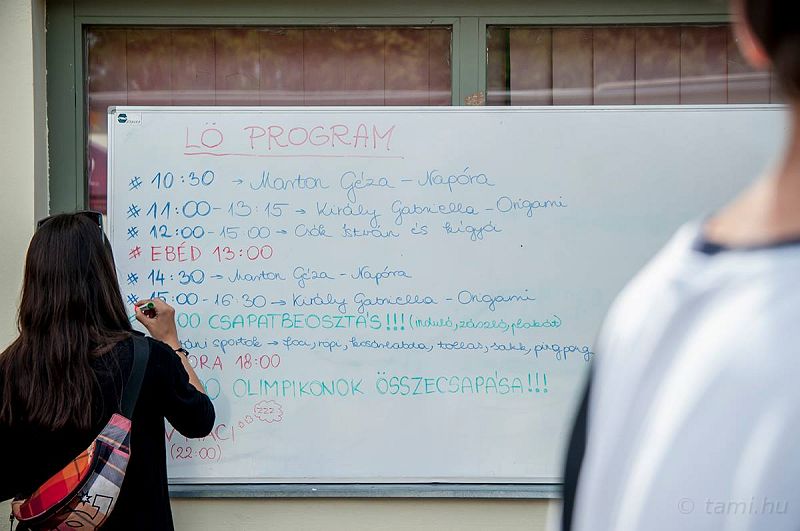 LŐ PROGRAM
# 10:30 → Marton Géza - Napóra
# 11:00-13:15 → Király Gabriella - Origami
# 12:00-15:00 → Csók István és kígyói
# EBÉD 13:00
# 14:30 → Marton Géza - Napóra
# 15:00-16:30 → Király Gabriella - Origami
00 CSAPATBEOSZTÁS!!! (induló, zászló, plakát)
sportok → foci, röpi, kosárlabda, tollas, sakk, pingpong
ORA 18:00
0 OLIMPIKONOK ÖSSZECSAPÁSA!!!
MACI zzz
(22:00)
© tami.hu